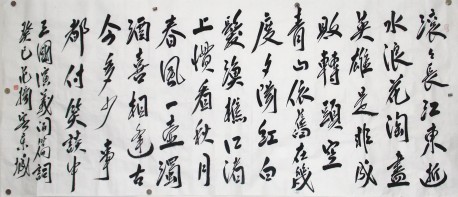 滚〻長江東逝
水浪花淘盡
英雄是非成
敗轉頭空
青山依舊在幾
度夕陽紅白
髮漁樵江渚
上慣看秋月
春風一壺濁
酒喜相逢古
今多少事
都付笑談中
三國演義開篇詞
癸巳